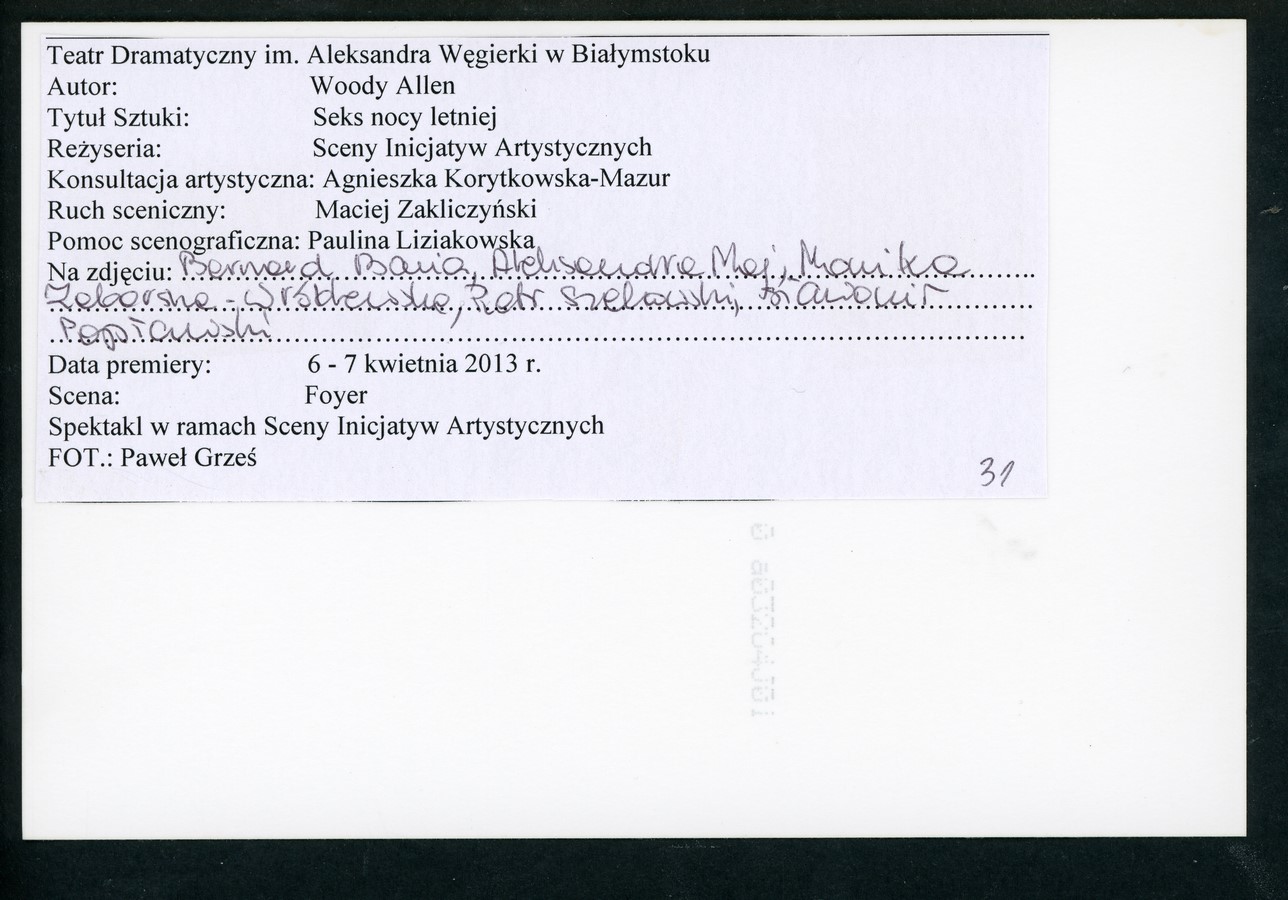 Teatr Dramatyczny im. Aleksandra Węgierki w Białymstoku
Autor: Woody Allen
Tytuł Sztuki: Seks nocy letniej
Reżyseria: Sceny Inicjatyw Artystycznych
Konsultacja artystyczna: Agnieszka Korytkowska-Mazur
Ruch sceniczny: Maciej Zakliczyński
Pomoc scenograficzna: Paulina Liziakowska
Na zdjęciu: Bernard Bania, Aleksandra Maj, Monika
Zaborska-Wróblewska, Piotr Szekowski, Sławomir
Popławski
Data premiery: 6 - 7 kwietnia 2013 r.
Scena: Foyer
Spektakl w ramach Sceny Inicjatyw Artystycznych
FOT.: Paweł Grześ
31